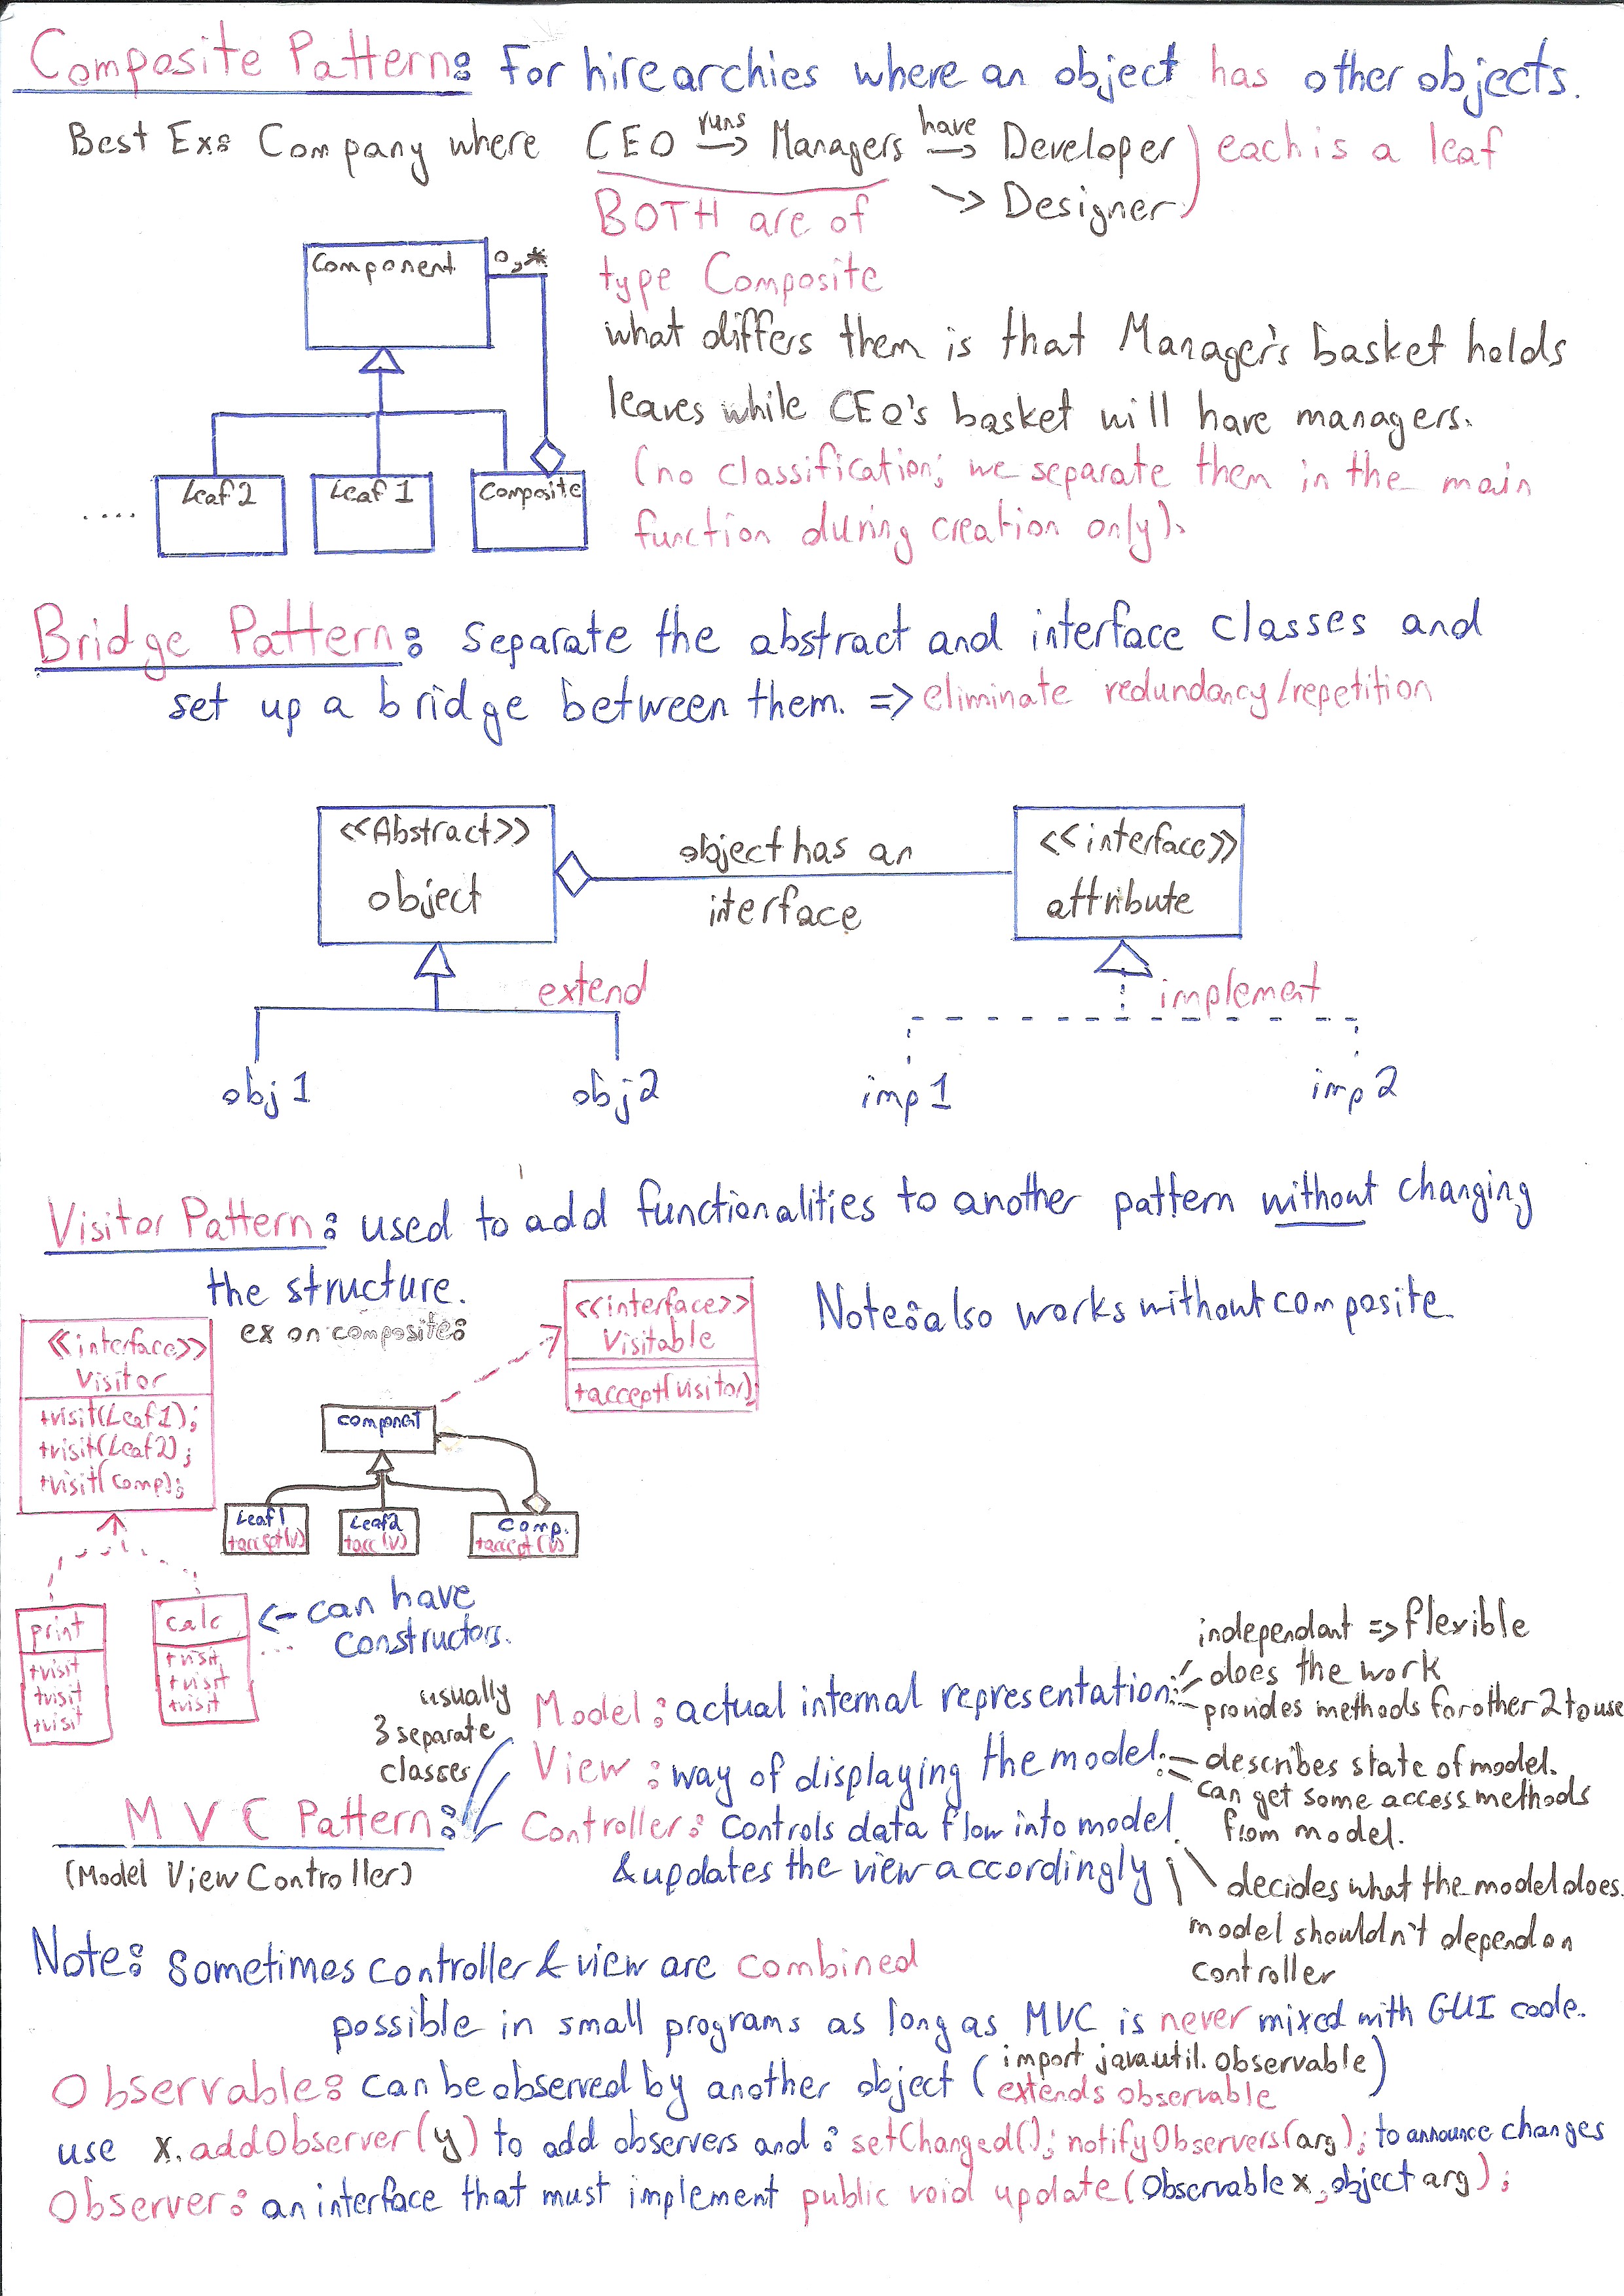 Composite Pattern: For hirearchies where an object has other objects.
Best Ex: Company where CEO runs→ Managers have→ Developer) each is a leaf
↘ Designer)
BOTH are of
type Composite
Component 0,*
what differs them is that Manager's basket holds
leaves while CEO's basket will have managers.
(no classification; we separate them in the main
function during creation only).
.... Leaf2 Leaf 1 Composite
Bridge Pattern: Separate the abstract and interface classes and
set up a bridge between them. => eliminate redundancy/repetition
<<Abstract>>
object
object has an
interface
<<interface>>
attribute
extend
implement
obj 1 obj 2 imp 1 imp 2
Visitor Pattern: used to add functionalities to another pattern without changing
the structure.
Note: also works without composite
ex on composite:
<<interface>>
Visitable
+accept(visitor);
<<interface>>
Visitor
+visit(Leaf1);
+visit(Leaf2);
+visit(comp);
component
Leaf1
+accept(v)
Leaf2
+acc(v)
Comp.
+accept(v)
print
+visit
+visit
+visit
calc
+visit
+visit
+visit
...
<- can have
constructors.
usually
3 separate
classes
MVC Pattern:
(Model View Controller)
Model: actual internal representation:
independant => flexible
does the work
provides methods for other 2 to use
View: way of displaying the model:
describes state of model.
can get some access methods
from model.
Controller: controls data flow into model
& updates the view accordingly
decides what the model does.
model shouldn't depend on
controller
Note: Sometimes controller & view are combined
possible in small programs as long as MVC is never mixed with GUI code.
Observable: can be observed by another object (import java.util.observable)
extends observable
use x.addObserver(y) to add observers and: setChanged(); notifyObservers(arg); to announce changes
Observer: an interface that must implement public void update(Observable x, object arg);